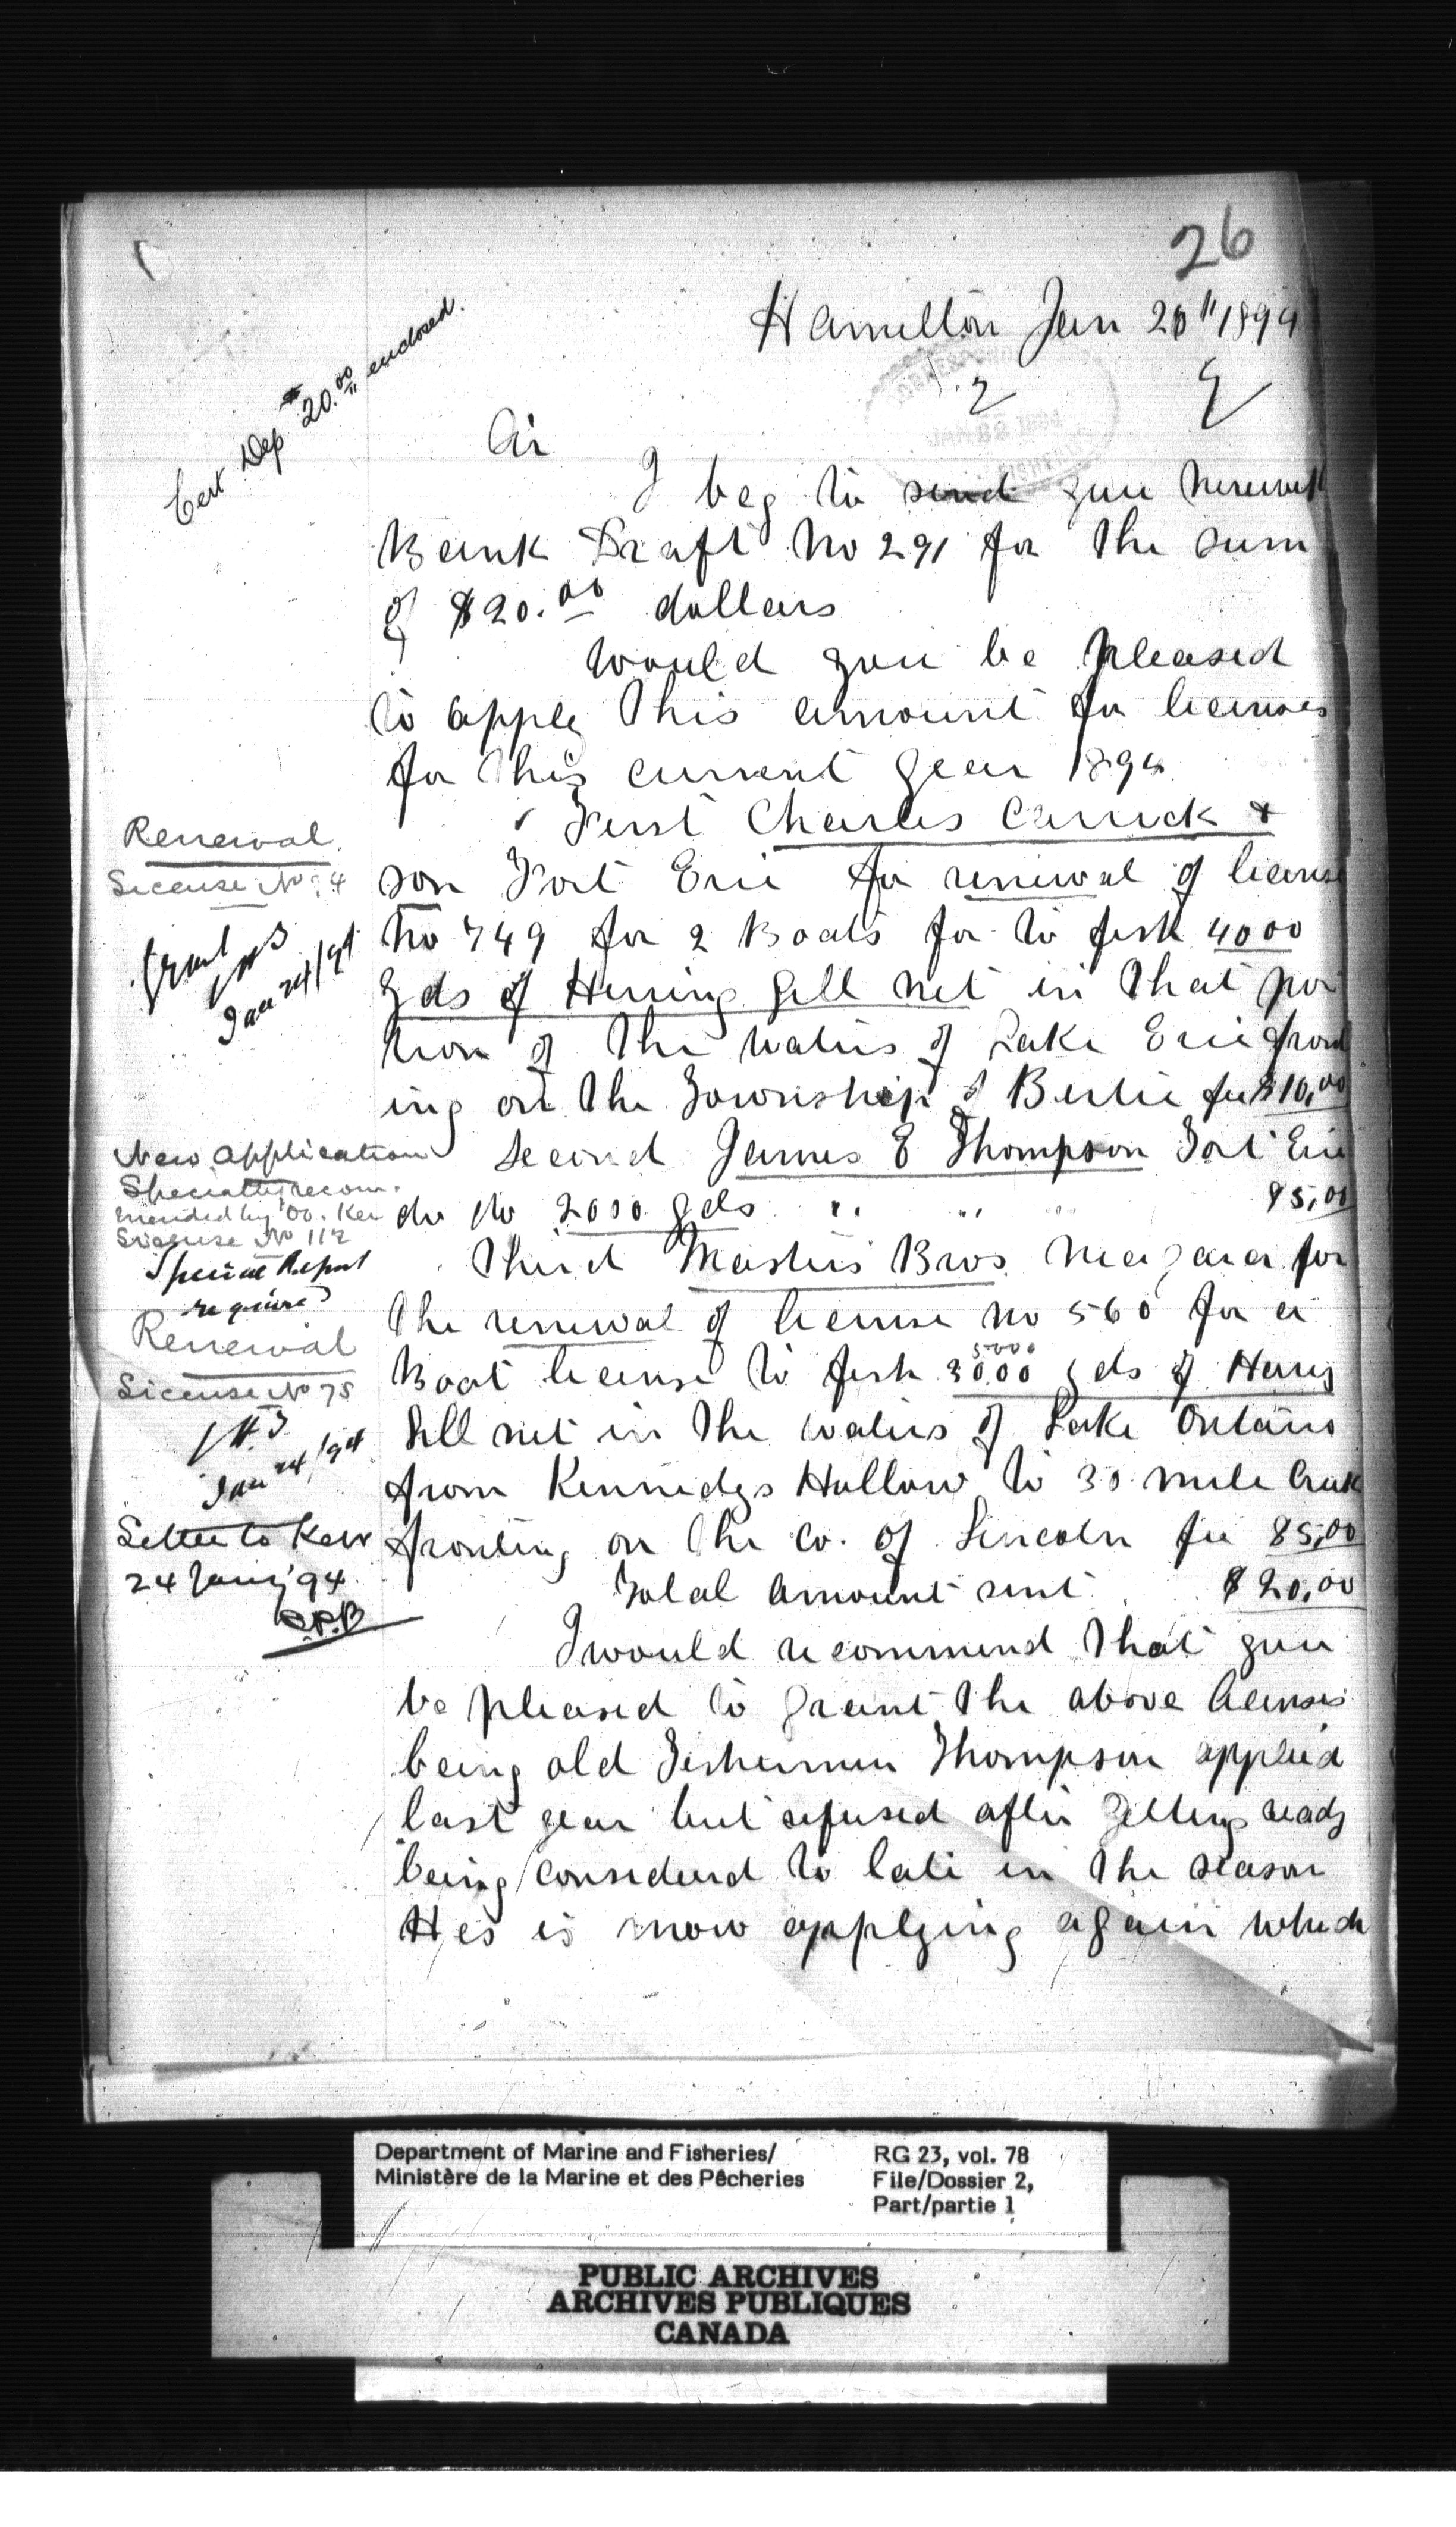 26
Hamilton Jan 20" 1894
Cert Dep $20.00 enclosed.
JAN 22 1894
Sir
I beg to send you herewith
Bank Draft No 291 for the sum
of $20.00 dollars
Would you be pleased
to apply this amount for licenses
for this current year 1894
First Charles Carrick &
Renewal.
son Fort Erie for renewal of license
License No 4
No 749 for 2 Boats for to fish 4000
Grant
Jan 24/94
yds of Herring Gill net in that por
tion of the waters of Lake Erie front
ing on the Township of Bertie fee $10,00
New Application
Second James E Thompson Fort Erie
Specially recom-
mended by Oo. Kerr
License No 112
do No 2000 yds " " " $5,00
Special Report
required
Third Masters Bros. Niagara for
the renewal of license no 560 for a
Renewal
5000
Boat license to fish 3000 yds of Herring
License No 75
Jan 24/94
Gill net in the waters of Lake Ontario
from Kennedys Hollow to 30 mile Creek
Letter to Kerr
24 Jany '94
fronting on the Co. of Lincoln fee $5,00
Total Amount sent $20,00
I would recommend that you
be pleased to grant the above licenses
being old Fishermen Thompson applied
last year but refused after getting ready
being considered to late in the season
Hes is now applying again which
Department of Marine and Fisheries/
Ministère de la Marine et des Pêcheries
RG 23, vol. 78
File/Dossier 2,
Part/partie 1
PUBLIC ARCHIVES
ARCHIVES PUBLIQUES
CANADA